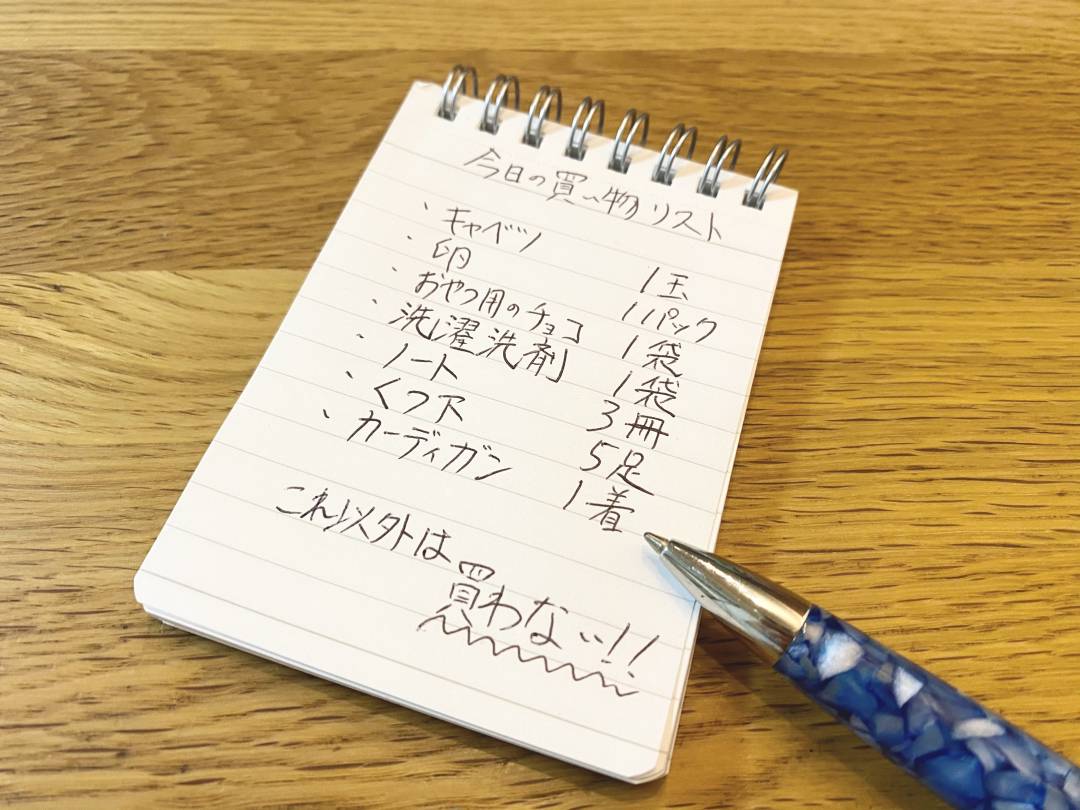 今日の買い物リスト
・キャベツ 1玉
・卵 1パック
・おやつ用のチョコ 1袋
・洗濯洗剤 1袋
・ノート 3冊
・くつ下 5足
・カーディガン 1着
これ以外は
買わない!!